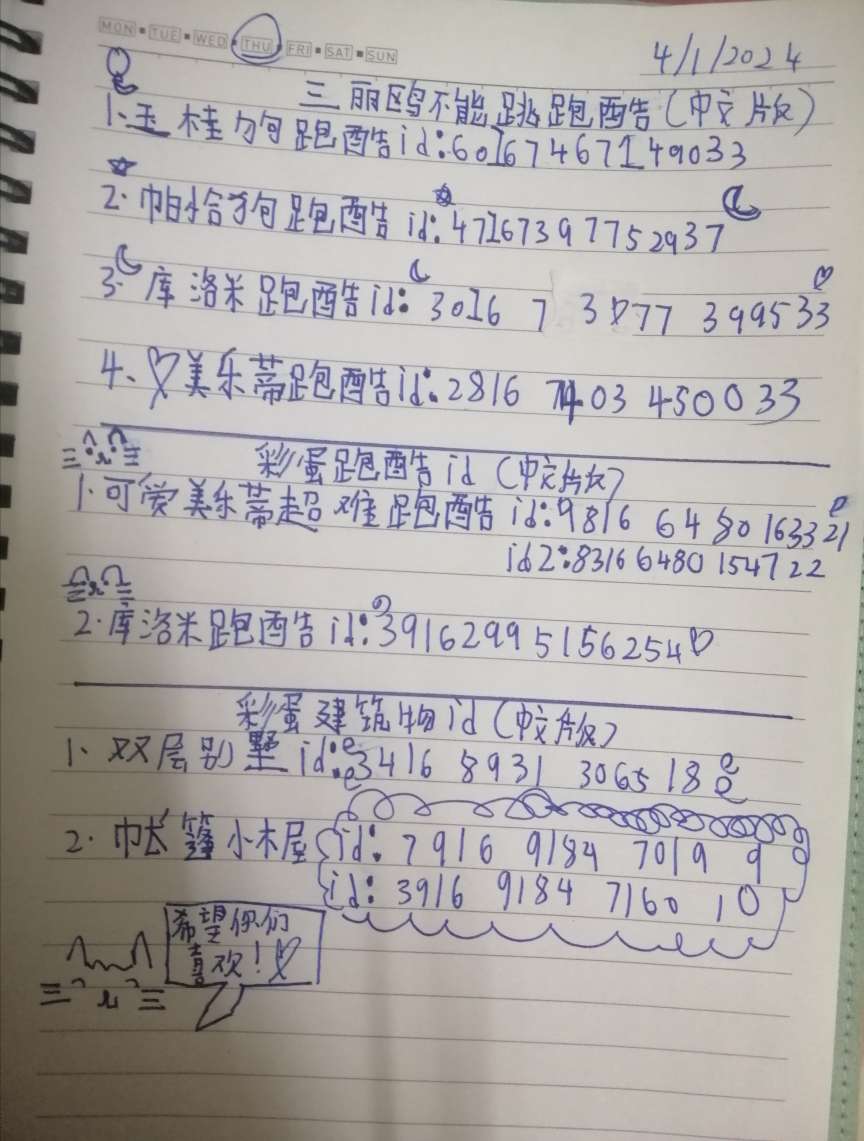 MON TUE WED THU FRI SAT SUN
4/1/2024
三丽鸥不能跳跑酷(中文版)
1.玉桂狗跑酷id:601674671149033
2.帕恰狗跑酷id:471673977752937
3.库洛米跑酷id:3016 7 3 777 399533
4、美乐蒂跑酷id:2816 7403 450033
彩蛋跑酷id(中文版)
1.可爱美乐蒂超难跑酷id:9816 64 80 163321
id2:83166480 154722
2.库洛米跑酷id:39162995156254
彩蛋建筑物id(中文版)
1、双层别墅id:3416 8931 306518
2.帐篷小木屋id:7916 9184 7019 9
id:3916 9184 7160 10
希望你们
喜欢!